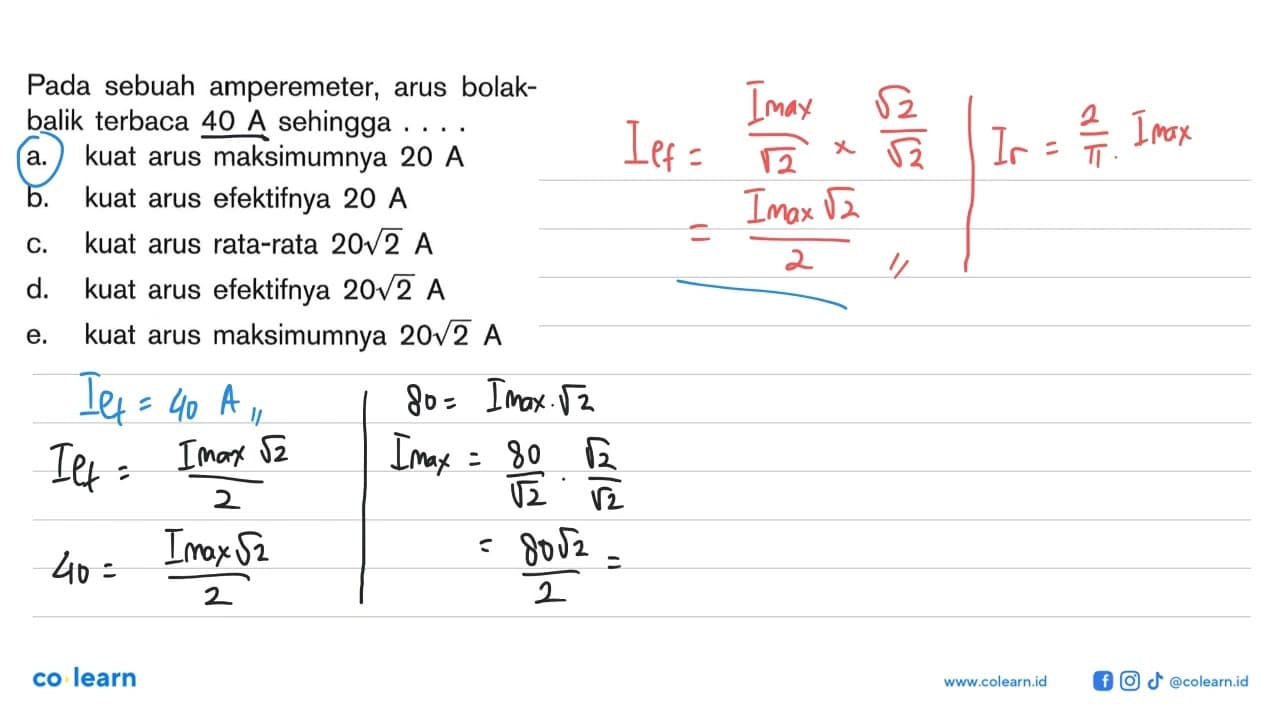 Pada sebuah amperemeter, arus bolak-
balik terbaca 40 A sehingga . . . .
a. kuat arus maksimumnya 20 A
b. kuat arus efektifnya 20 A
c. kuat arus rata-rata 20√2 A
d. kuat arus efektifnya 20√2 A
e. kuat arus maksimumnya 20√2 A
Ief = Imax/√2 × √2/√2
= Imax √2/2 //
Ir = 2/π . Imax
Ief = 40 A //
Ief = Imax √2/2
40 = Imax √2/2
80 = Imax . √2
Imax = 80/√2 . √2/√2
= 80√2/2 =
co learn
www.colearn.id
@colearn.id